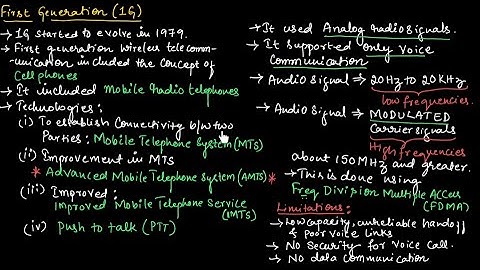 First Generation (1G)
→ 1G started to evolve in 1979.
→ First generation wireless telecomm-
-unication included the concept of
Cell phones
→ It included Mobile Radio telephones
→ Technologies:
(i) To establish Connectivity b/w two
Parties: Mobile Telephone System (MTS)
(ii) Improvement in MTS
* Advanced Mobile Telephone System (AMTS) *
(iii) Improved:
Improved Mobile Telephone Service
(IMTS)
(iv) Push to talk (PTT)
→ It used Analog Radio signals.
→ It supported only Voice
Communication
→ Audio Signal ⇒ 20Hz to 20KHz
low frequencies.
→ Audio Signal ⇒ MODULATED
Carrier signals
High frequencies
about 150MHz and greater.
→ This is done using
Freq. Division Multiple Access
(FDMA)
Limitations:
→ Low capacity, unreliable handoff
& poor voice links
→ No security for voice call.
→ No data communication